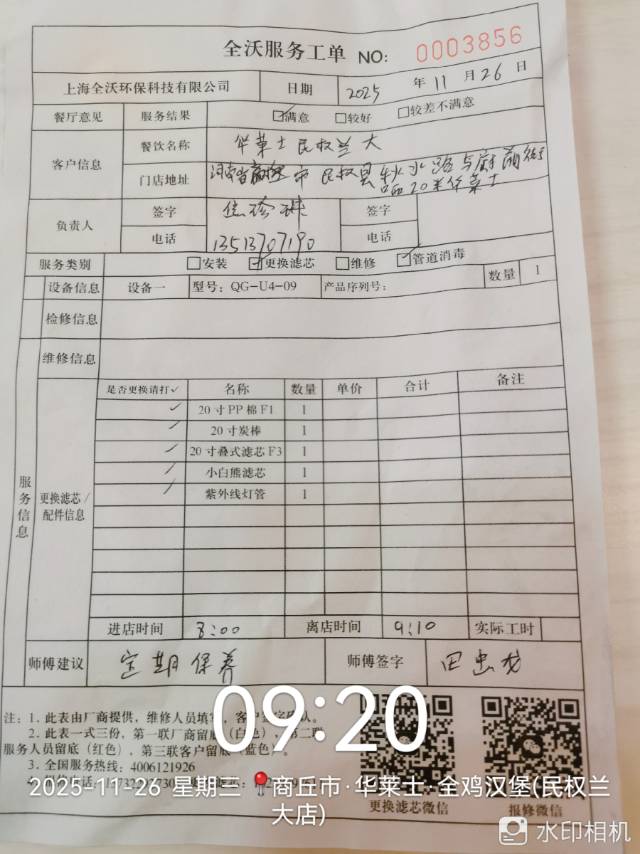 全沃服务工单 NO: 0003856
上海全沃环保科技有限公司 日期 2025 年 11 月 26 日
餐厅意见 服务结果 ☑满意 □较好 □较差不满意
客户信息 餐饮名称 华莱士民权兰大
门店地址 河南省 市 民权县秋水路与 街
20米华莱士
负责人 签字 签字
电话 13513707190 电话
服务类别 □安装 ☑更换滤芯 □维修 ☑管道消毒
设备信息 设备一 型号: QG-U4-09 产品序列号: 数量 1
检修信息
维修信息
服务信息
更换滤芯/配件信息
是否更换请打✓ 名称 数量 单价 合计 备注
✓ 20寸PP棉F1 1
✓ 20寸炭棒 1
✓ 20寸叠式滤芯F3 1
✓ 小白熊滤芯 1
✓ 紫外线灯管 1
进店时间 8:00 离店时间 9:10 实际工时
师傅建议 定期保养 师傅签字 田忠龙
09:20
注: 1. 此表由厂商提供, 维修人员填写, 客户 。
2. 此表一式三份, 第一联厂商留底(白色), 第二联
服务人员留底(红色), 第三联客户留底(蓝色)。
3. 全国服务热线: 4006121926
2025-11-26 星期三 商丘市·华莱士·全鸡汉堡(民权兰
大店)
更换滤芯微信 报修微信
水印相机